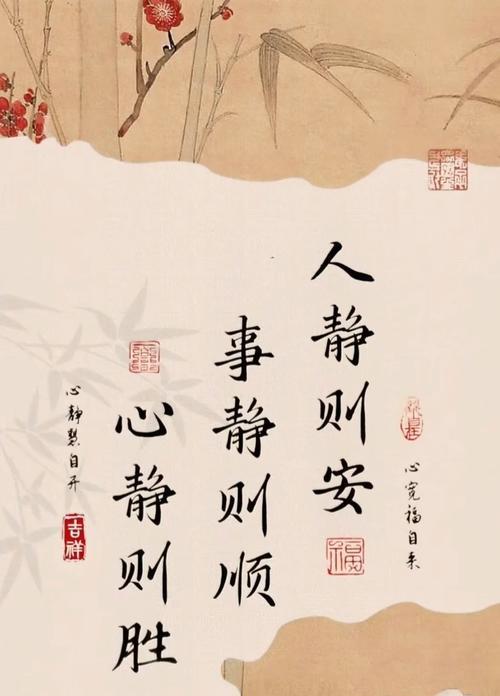 心宽福自来
人静则安
福
事静则顺
心静则胜
心静自开
吉祥